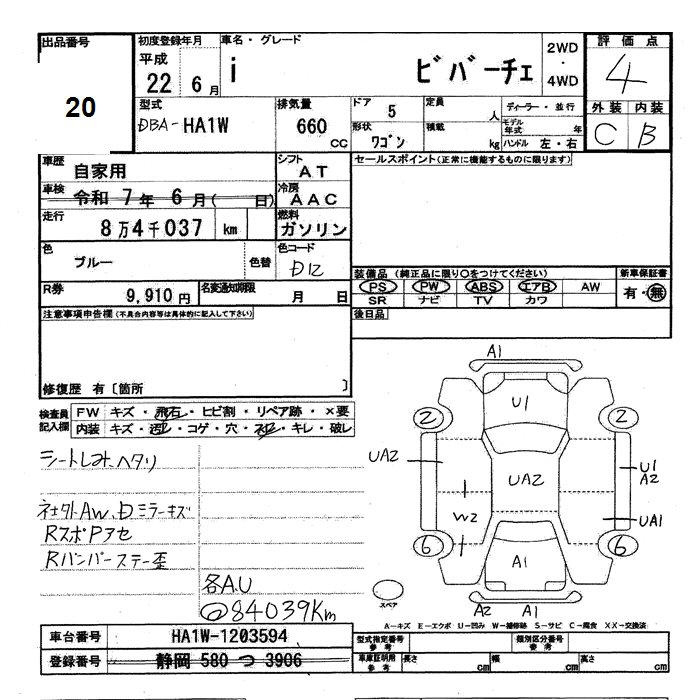 出品番号 初度登録年月 車名・グレード 2WD・4WD 評価点
20 平成22年6月 i ビバーチェ 4
型式 排気量 ドア 5 定員 人 ディーラー・並行 外装 内装
DBA-HA1W 660CC 形状 ワゴン 積載 kg モデル年式 年 ハンドル 左・右 C B
車歴 自家用 シフト AT セールスポイント(正常に機能するものに限ります)
車検 令和7年6月(日) 冷房 AAC
走行 8万4千037 km 燃料 ガソリン
色 ブルー 色替 色コード D12
装備品 (純正品に限り○をつけてください) 新車保証書
PS PW ABS エアB AW 有・無
R券 9,910円 名変通知期限 月 日 SR ナビ TV カワ
注意事項申告欄(不具合内容等は具体的に記入して下さい) 後日品
修復歴 有〔箇所 〕
検査員記入欄 FW キズ・飛石・ヒビ割・リペア跡・×要
内装 キズ・汚レ・コゲ・穴・スレ・キレ・破レ
シートしみ、ヘタリ
社外AW、Dミラーキズ
RスポPアセ
Rバンパーステー歪
各A.U
@84039Km
A1
U1
2 2
UA2 UA2 U1
A2
W2 UA1
6 6
A1
スペア A2 A1
A-キズ E-エクボ U-凹み W-補修跡 S-サビ C-腐食 XX-交換済
車台番号 HA1W-1203594 型式指定番号 参考 類別区分番号 参考
登録番号 静岡 580 つ 3906 車庫証明用 参考 長さ cm 幅 cm 高さ cm